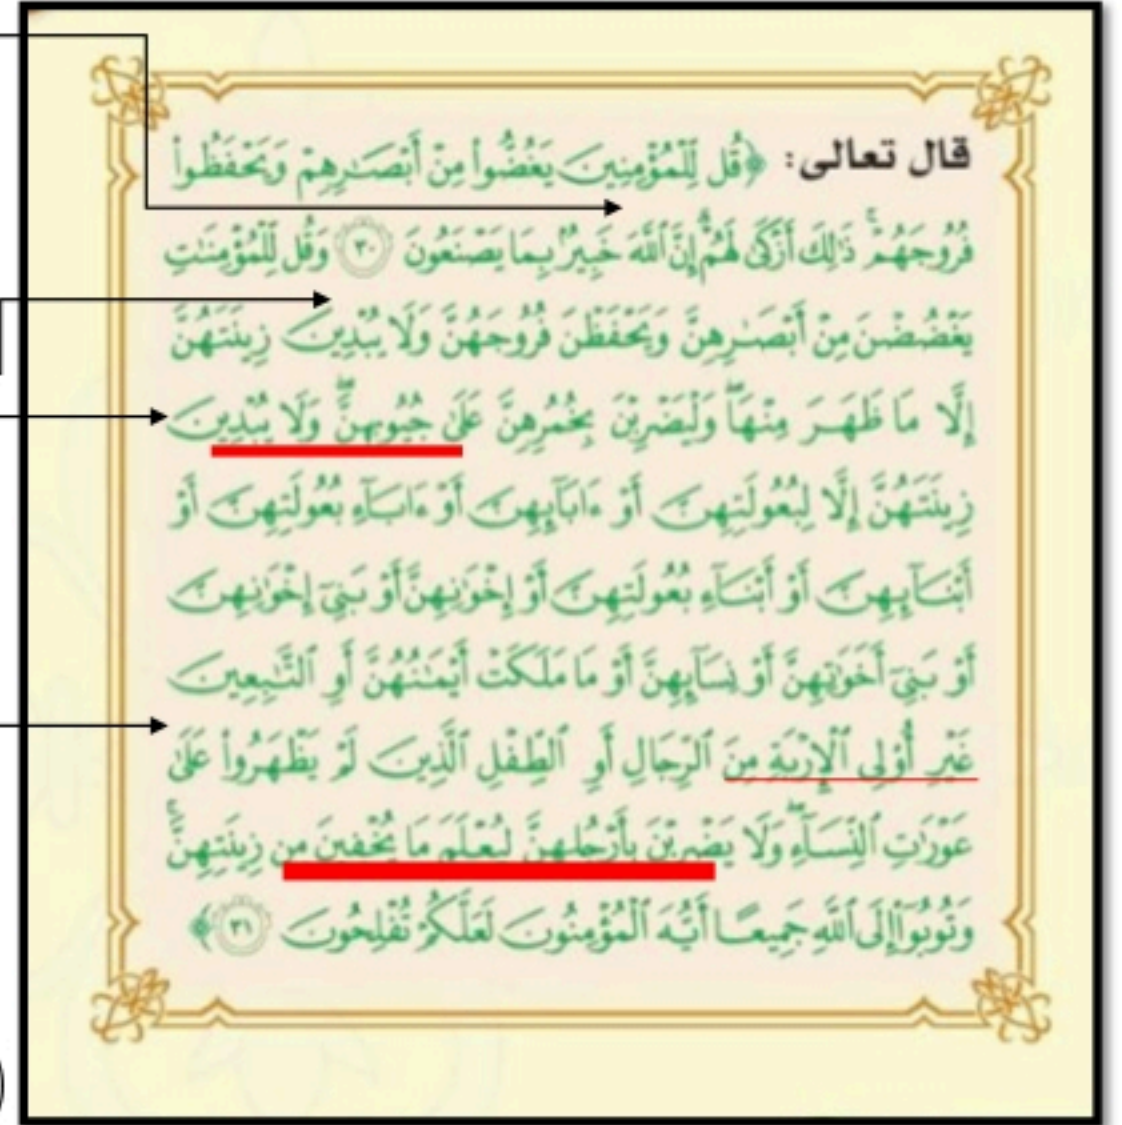 قال تعالى: ﴿قُل لِّلْمُؤْمِنِينَ يَغُضُّوا۟ مِنْ أَبْصَـٰرِهِمْ وَيَحْفَظُوا۟
فُرُوجَهُمْ ۚ ذَٰلِكَ أَزْكَىٰ لَهُمْ ۗ إِنَّ ٱللَّهَ خَبِيرٌۢ بِمَا يَصْنَعُونَ ٣٠ وَقُل لِّلْمُؤْمِنَـٰتِ
يَغْضُضْنَ مِنْ أَبْصَـٰرِهِنَّ وَيَحْفَظْنَ فُرُوجَهُنَّ وَلَا يُبْدِينَ زِينَتَهُنَّ
إِلَّا مَا ظَهَرَ مِنْهَا ۖ وَلْيَضْرِبْنَ بِخُمُرِهِنَّ عَلَىٰ جُيُوبِهِنَّ ۖ وَلَا يُبْدِينَ
زِينَتَهُنَّ إِلَّا لِبُعُولَتِهِنَّ أَوْ ءَابَآئِهِنَّ أَوْ ءَابَآءِ بُعُولَتِهِنَّ أَوْ
أَبْنَآئِهِنَّ أَوْ أَبْنَآءِ بُعُولَتِهِنَّ أَوْ إِخْوَٰنِهِنَّ أَوْ بَنِىٓ إِخْوَٰنِهِنَّ
أَوْ بَنِىٓ أَخَوَٰتِهِنَّ أَوْ نِسَآئِهِنَّ أَوْ مَا مَلَكَتْ أَيْمَـٰنُهُنَّ أَوِ ٱلتَّـٰبِعِينَ
غَيْرِ أُو۟لِى ٱلْإِرْبَةِ مِنَ ٱلرِّجَالِ أَوِ ٱلطِّفْلِ ٱلَّذِينَ لَمْ يَظْهَرُوا۟ عَلَىٰ
عَوْرَٰتِ ٱلنِّسَآءِ ۖ وَلَا يَضْرِبْنَ بِأَرْجُلِهِنَّ لِيُعْلَمَ مَا يُخْفِينَ مِن زِينَتِهِنَّ ۚ
وَتُوبُوٓا۟ إِلَى ٱللَّهِ جَمِيعًا أَيُّهَ ٱلْمُؤْمِنُونَ لَعَلَّكُمْ تُفْلِحُونَ ٣١﴾